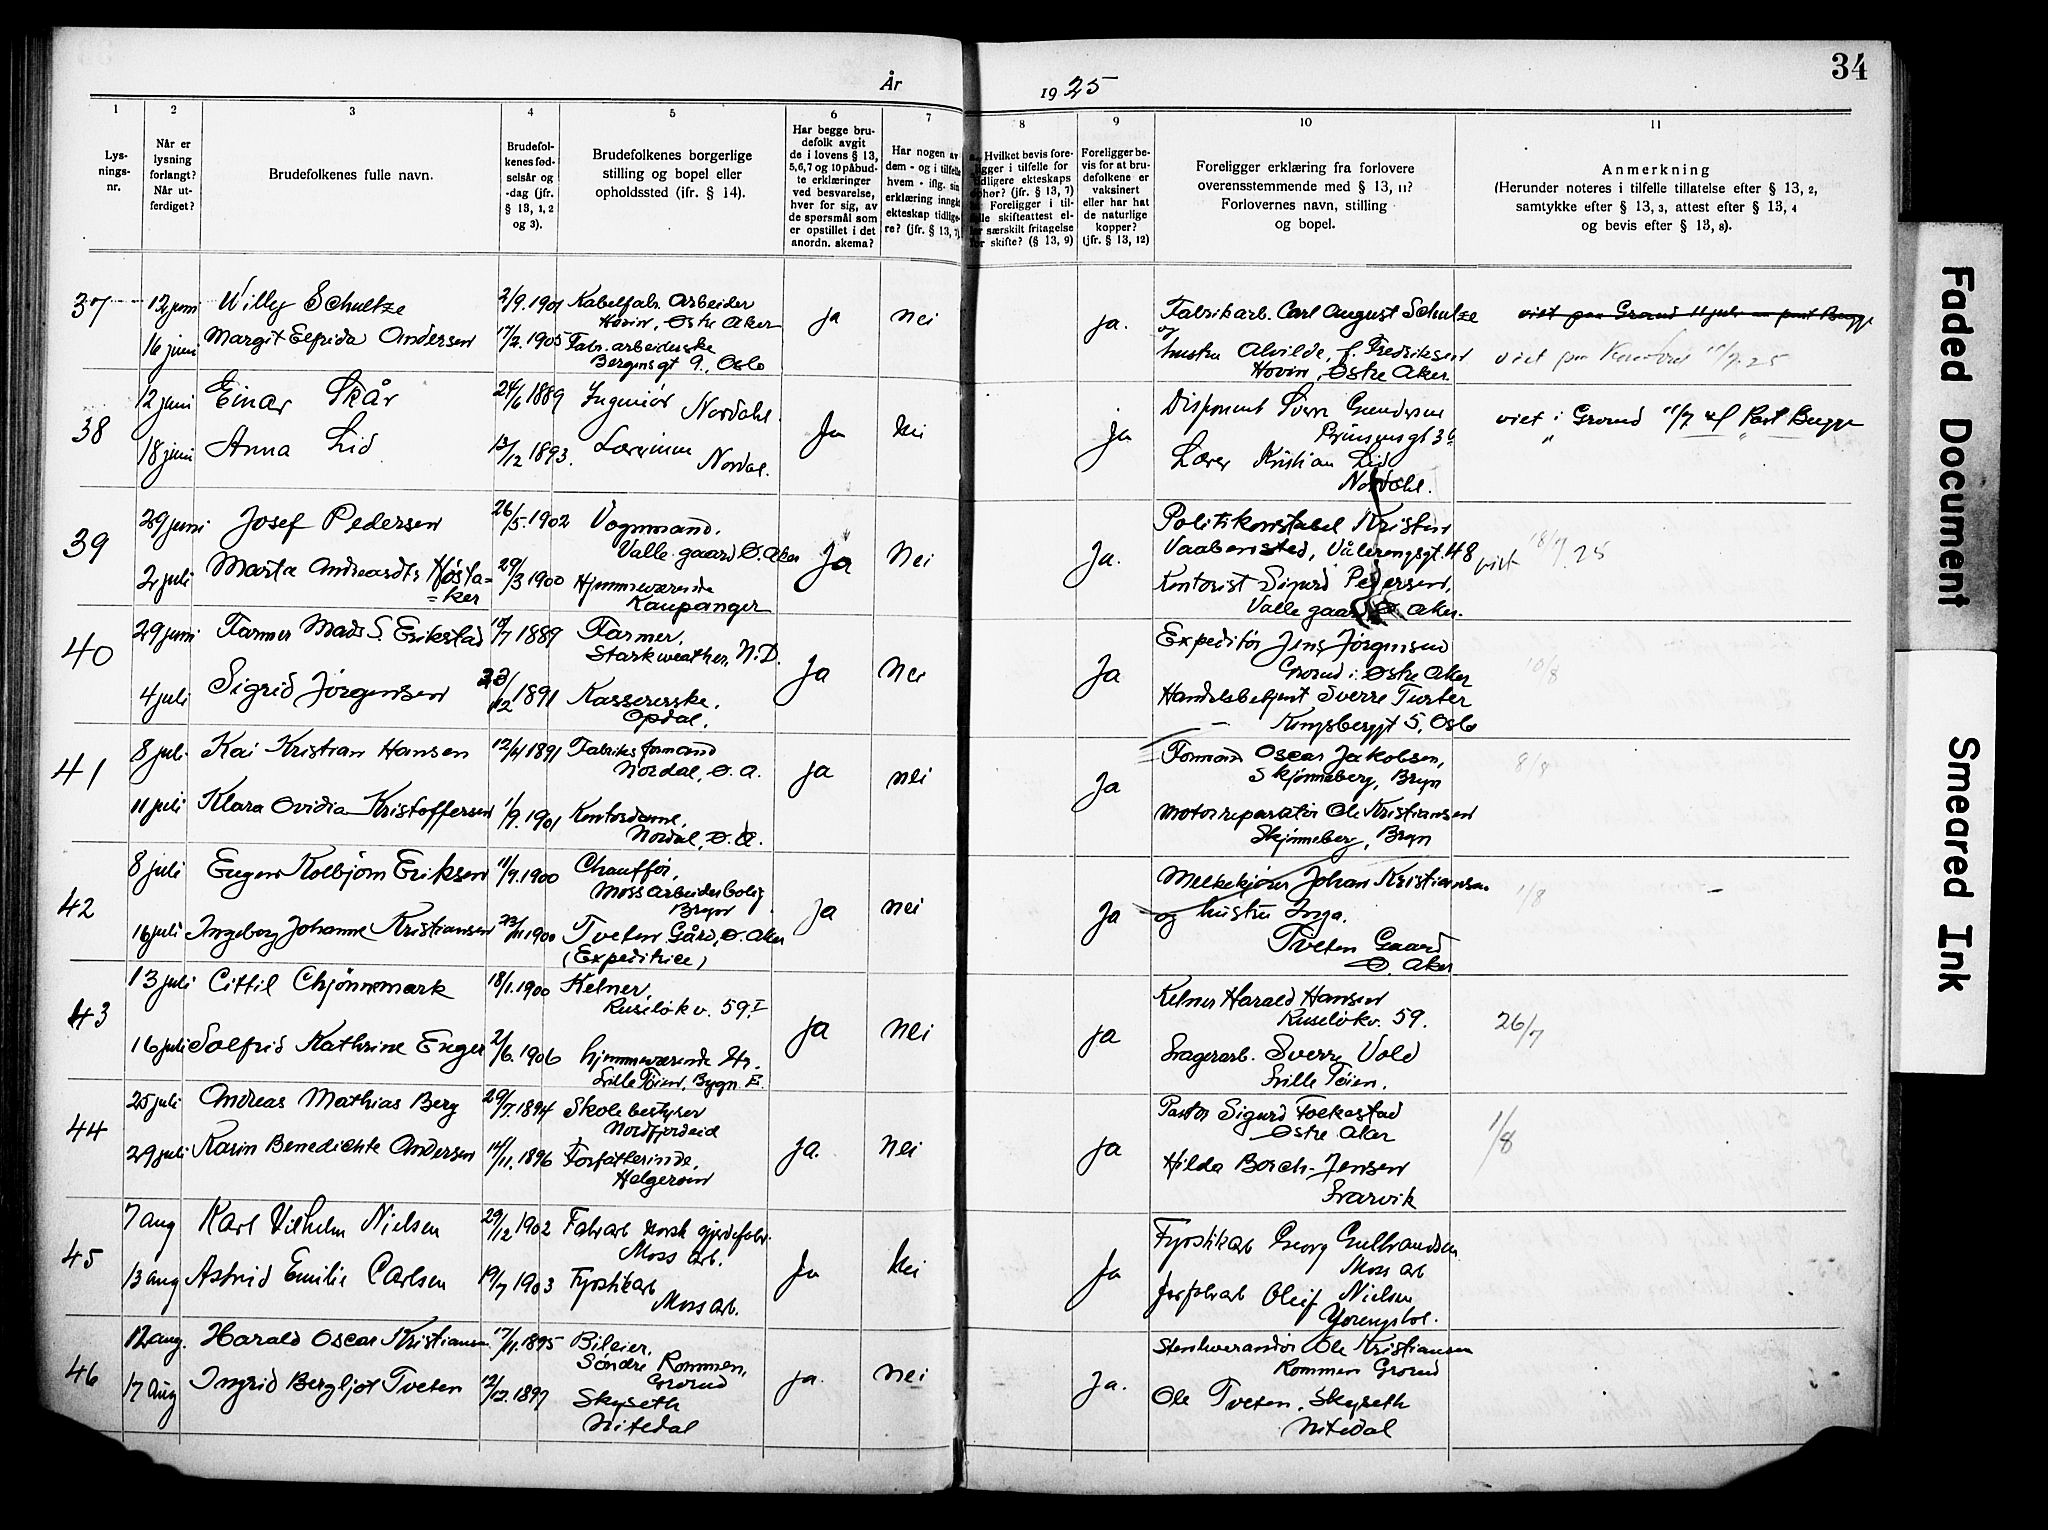 34
År
1925
1
2
3
4
5
6
7
8
9
10
11
Lys-
nings-
nr.
Når er
lysning
forlangt?
Når ut-
ferdiget?
Brudefolkenes fulle navn.
Brudefol-
kenes fød-
selsår og
-dag (jfr.
§ 13, 1, 2
og 3).
Brudefolkenes borgerlige
stilling og bopel eller
opholdssted (ifr. § 14).
Har begge bru-
defolk avgit
de i lovens § 13,
5,6,7 og 10 påbud-
te erklæringer
ved besvarelse,
hver for sig, av
de spørsmål som
er opstillet i det
anordn. skema?
Har nogen av
dem - og i tilfelle
hvem - iflg. sin
erklæring inngåt
ekteskap tidlige-
re? (jfr. § 13, 7).
Hvilket bevis fore-
ligger i tilfelle for
tidligere ekteskaps
ophør? (jfr. § 13, 7)
Foreligger i til-
felle skifteattest el-
ler særskilt fritagelse
for skifte? (§ 13, 9)
Foreligger be-
vis for at bru-
defolkene er
vaksinert
eller har hat
de naturlige
kopper?
(jfr. § 13, 12)
Foreligger erklæring fra forlovere
overensstemmende med § 13, 11?
Forlovernes navn, stilling
og bopel.
Anmerkning
(Herunder noteres i tilfelle tillatelse efter § 13, 2,
samtykke efter § 13, 3, attest efter § 13, 4
og bevis efter § 13, 8).
37
12 juni
16 juni
Willy Schultze
Margit Elfrida Andersen
2/9.1901
17/2.1905
Kabelfabr. arbeider
Hovin, Østre Aker
Fabr. arbeiderske
Bergensgt 9., Oslo
ja
nei
ja.
Fabrikarb. Carl August Schultze
og
hustru Alvilde, f. Fredriksen
Hovin, Østre Aker.
viet paa Grorud 11 juli
viet paa 11/7.25
38
12 juni
18 juni
Einar Skår
Anna Lid
24/6 1889
13/12 1893.
Ingeniør
Nordahl.
Lærerinne
Nordal.
Ja
Nei
Ja
Disponent Sverre Gundersen
Prinsensgt 3b
Lærer Kristian Lid
Nordahl.
viet i Grorud 11/7 af Past Bugge
39
29 juni
2 juli
Josef Pedersen
Marta Andreasdtr Høsta-
=ker
26/5.1902
29/3 1900
Vognmand.
Valle gaard Ø. Aker
Hjemmeværende
Kaupanger
Ja
Nei
Ja.
Politikonstabel Kristen
Vaabensted, Vålerengsgt. 48
Kontorist Sigurd Pedersen,
Valle gaard Ø. Aker.
viet 18/7.25
40
29 juni
4 juli
Farmer Mads S. Erikstad
Sigrid Jørgensen
1889
1891
Farmer,
Starkweather, N.D.
Kassererske,
Opdal.
Ja
Nei
Ja
Expeditør Jens Jørgensen
Grorud i Østre Aker
Handelsbetjent Sverre Turter
Kongsberggt 5, Oslo
10/8
41
8 juli
11 juli
Kai Kristian Hansen
Klara Ovidia Kristoffersen
12/4 1891
1/9.1901
Fabriksformand
Nordal, Ø. A.
Kontordame,
Nordal, Ø. A.
ja
nei
Ja
Formand Oscar Jakobsen,
Skjønneberg, Bryn
Motorreparatør Ole Kristiansen
Skjønneberg, Bryn
8/8
42
8 juli
16 juli
Eugen Kolbjørn Eriksen
Ingeborg Johanne Kristiansen
11/9.1900
23/11 1900
Chauffør,
Moss arbeiderbolig
Bryn
Tveten Gård, Ø. Aker
(Expeditrice)
Ja
nei
Ja
Melkekjører Johan Kristiansen
og hustru Inga.
Tveten Gaard
Ø. Aker
1/8
43
13 juli
16 juli
Cittil Chjønnemark
Solfrid Kathrine Enger
18/1.1900
2/6.1906
Kelner,
Ruseløkv. 59.I
hjemmeværende
Lille Tøien, Bygn. E.
Ja
Nei
Ja
Kelner Harald Hansen
Ruseløkv. 59.
Lagerarb. Sverre Vold
Lille Tøien.
26/7
44
25 juli
29 juli
Andreas Mathias Berg
Karin Benedichte Andersen
29/7.1894
14/11.1896
Skolebestyrer
Nordfjordeid
Forfatterinde,
Helgeroen
ja.
nei
ja
Pastor Sigurd Folkestad
Østre Aker
Hilda Borch-Jensen
Larvik
1/8
45
7 aug
13 aug
Karl Vilhelm Nielsen
Astrid Emilie Carlsen
29/12 1902
19/7 1903
Fabrarb Norsk gjerdefabr.
Moss arb.
Fyrstikarb
Moss arb.
Ja
Nei
Ja
Fyrstikarb Georg Gulbrandsen
Moss arb
Oleif Nielsen
46
12 aug.
17 Aug
Harald Oscar Kristiansen
Ingrid Bergljot Tveten
17/11.1895
12/12.1897
Bileier,
Søndre Rommen,
Grorud
Skyseth
Nitedal
ja.
nei
Ja.
Stenleverandør Ole Kristiansen
Rommen Grorud
Ole Tveten, Skyseth
Nitedal
Faded Document
Smeared Ink